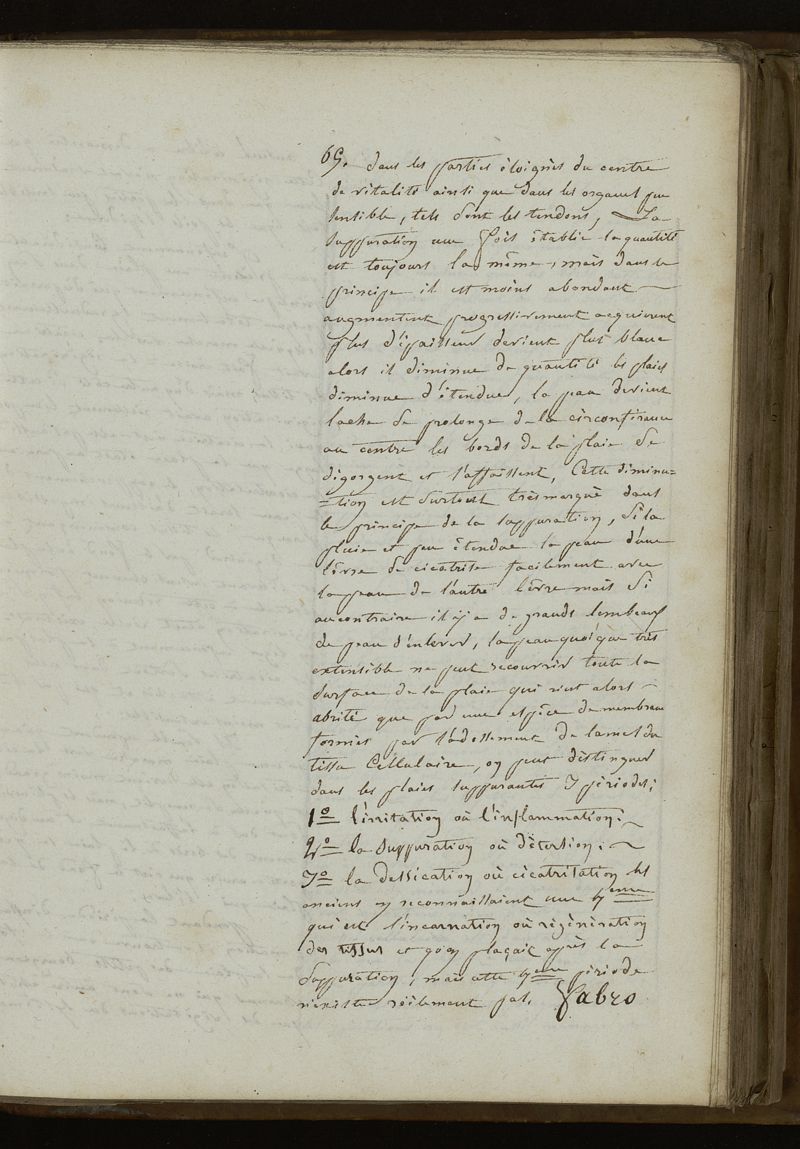 69. dans les parties èloignès du centre
de vitalité ainsi que dans les organes peu
sensible, tels sont les tendons, La
suppuration une fois ètablie la quantité
est toujours la même, mais dans le
principe il est moins abondant
augmentent progressivement acquierent
plus d'épaisseur devient plus blanc
alors il diminue de quantité les plaies
diminue d'étendue, la peau devient
lache se prolonge de la circonfèrance
au centre les bords de la plaie se
dègorgent et s'affaissent, Cette diminu=
=tion est surtout très marquè dans
le principe de la suppuration, si la
plaie est peu ètendue la peau d'une
lèvre se cicatrise facilement avec
la peau de l'autre lèvre mais si
aucontraire il y a de grands lembeaux
de peau d'enlever, la peau quoique très
extensible ne peut recouvrir toute la
surface de la plaie qui n'est alors
abrité que par une espèce de membrane
formès par l'adossement de lames du
tissu Cellulaire, on peut distinguer
dans les plaies suppurantes 3 pèriodes;
1º l'irritation où l'inflammation;
2º la Suppuration où dètersion;
3º la dessication où cicatrisation les
anciens en reconnaissaient une 4eme
qui est l'incarnation où règènèration
des tissus et qu'on plaçait après la
suppuration, mais cette 4eme pèriode
n'existe rèèlement pas. Fabro